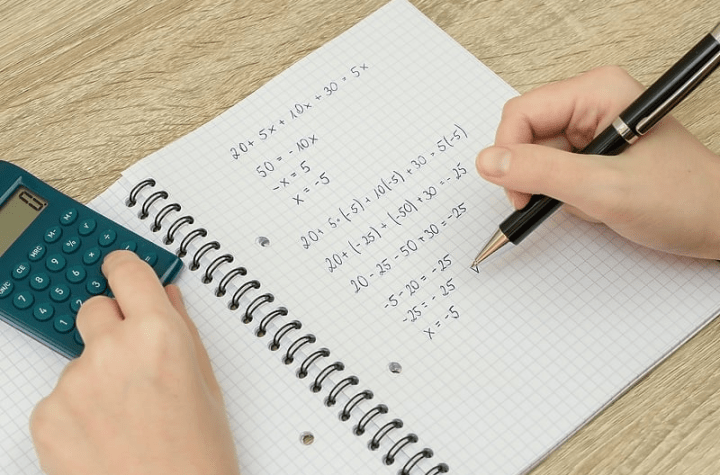 20 + 5x + 10x + 30 = 5x
50 = -10x
-x = 5
x = -5
20 + 5·(-5) + 10(-5) + 30 = 5(-5)
20 + (-25) + (-50) + 30 = -25
20 - 25 - 50 + 30 = -25
-5 - 20 = -25
-25 = -25
x = -5
M+
M-
%
÷
MRC
9
×
CE
8
6
7
5
3
4
2
1